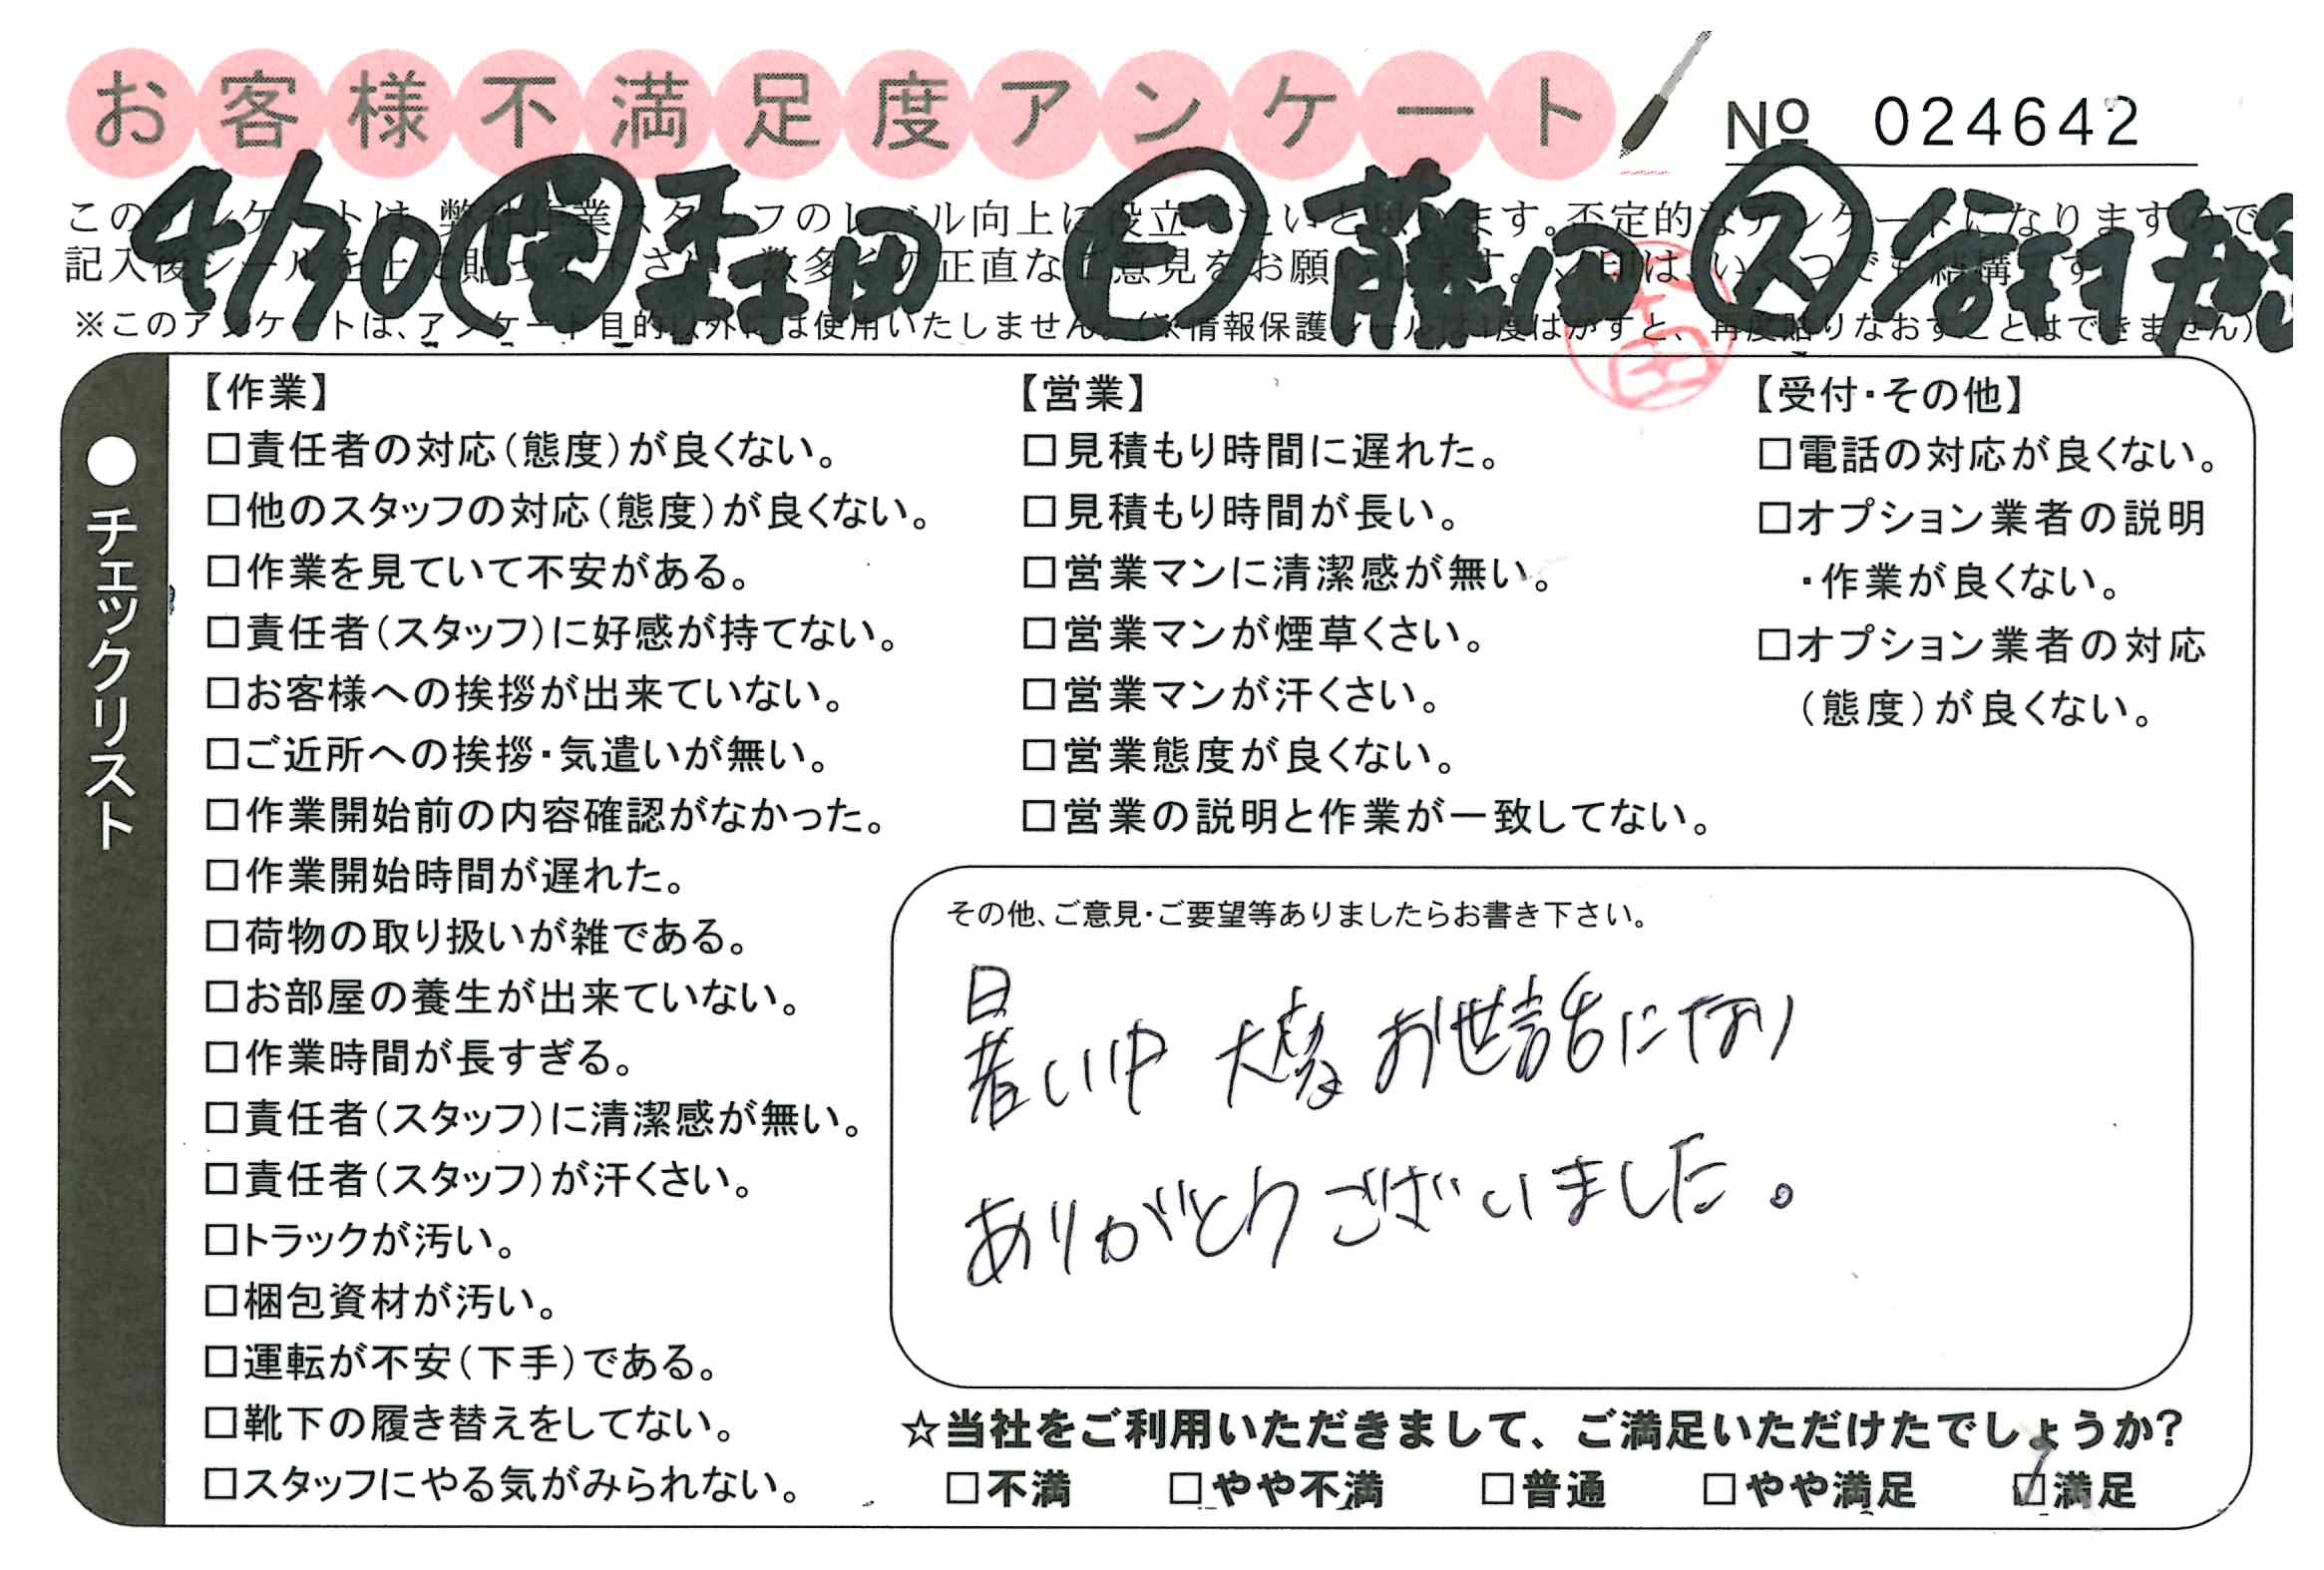 お客様不満足度アンケート
№ 024642
4/30
※このアンケートは、アンケート目的以外には使用いたしません。(※情報保護シールは1度はがすと、再度貼りなおすことはできません)
●チェックリスト
【作業】
□責任者の対応(態度)が良くない。
□他のスタッフの対応(態度)が良くない。
□作業を見ていて不安がある。
□責任者(スタッフ)に好感が持てない。
□お客様への挨拶が出来ていない。
□ご近所への挨拶・気遣いが無い。
□作業開始前の内容確認がなかった。
□作業開始時間が遅れた。
□荷物の取り扱いが雑である。
□お部屋の養生が出来ていない。
□作業時間が長すぎる。
□責任者(スタッフ)に清潔感が無い。
□責任者(スタッフ)が汗くさい。
□トラックが汚い。
□梱包資材が汚い。
□運転が不安(下手)である。
□靴下の履き替えをしてない。
□スタッフにやる気がみられない。
【営業】
□見積もり時間に遅れた。
□見積もり時間が長い。
□営業マンに清潔感が無い。
□営業マンが煙草くさい。
□営業マンが汗くさい。
□営業態度が良くない。
□営業の説明と作業が一致してない。
【受付・その他】
□電話の対応が良くない。
□オプション業者の説明
・作業が良くない。
□オプション業者の対応
(態度)が良くない。
その他、ご意見・ご要望等ありましたらお書き下さい。
暑い中 大変お世話になり
ありがとうございました。
☆当社をご利用いただきまして、ご満足いただけたでしょうか?
□不満 □やや不満 □普通 □やや満足 ☑満足